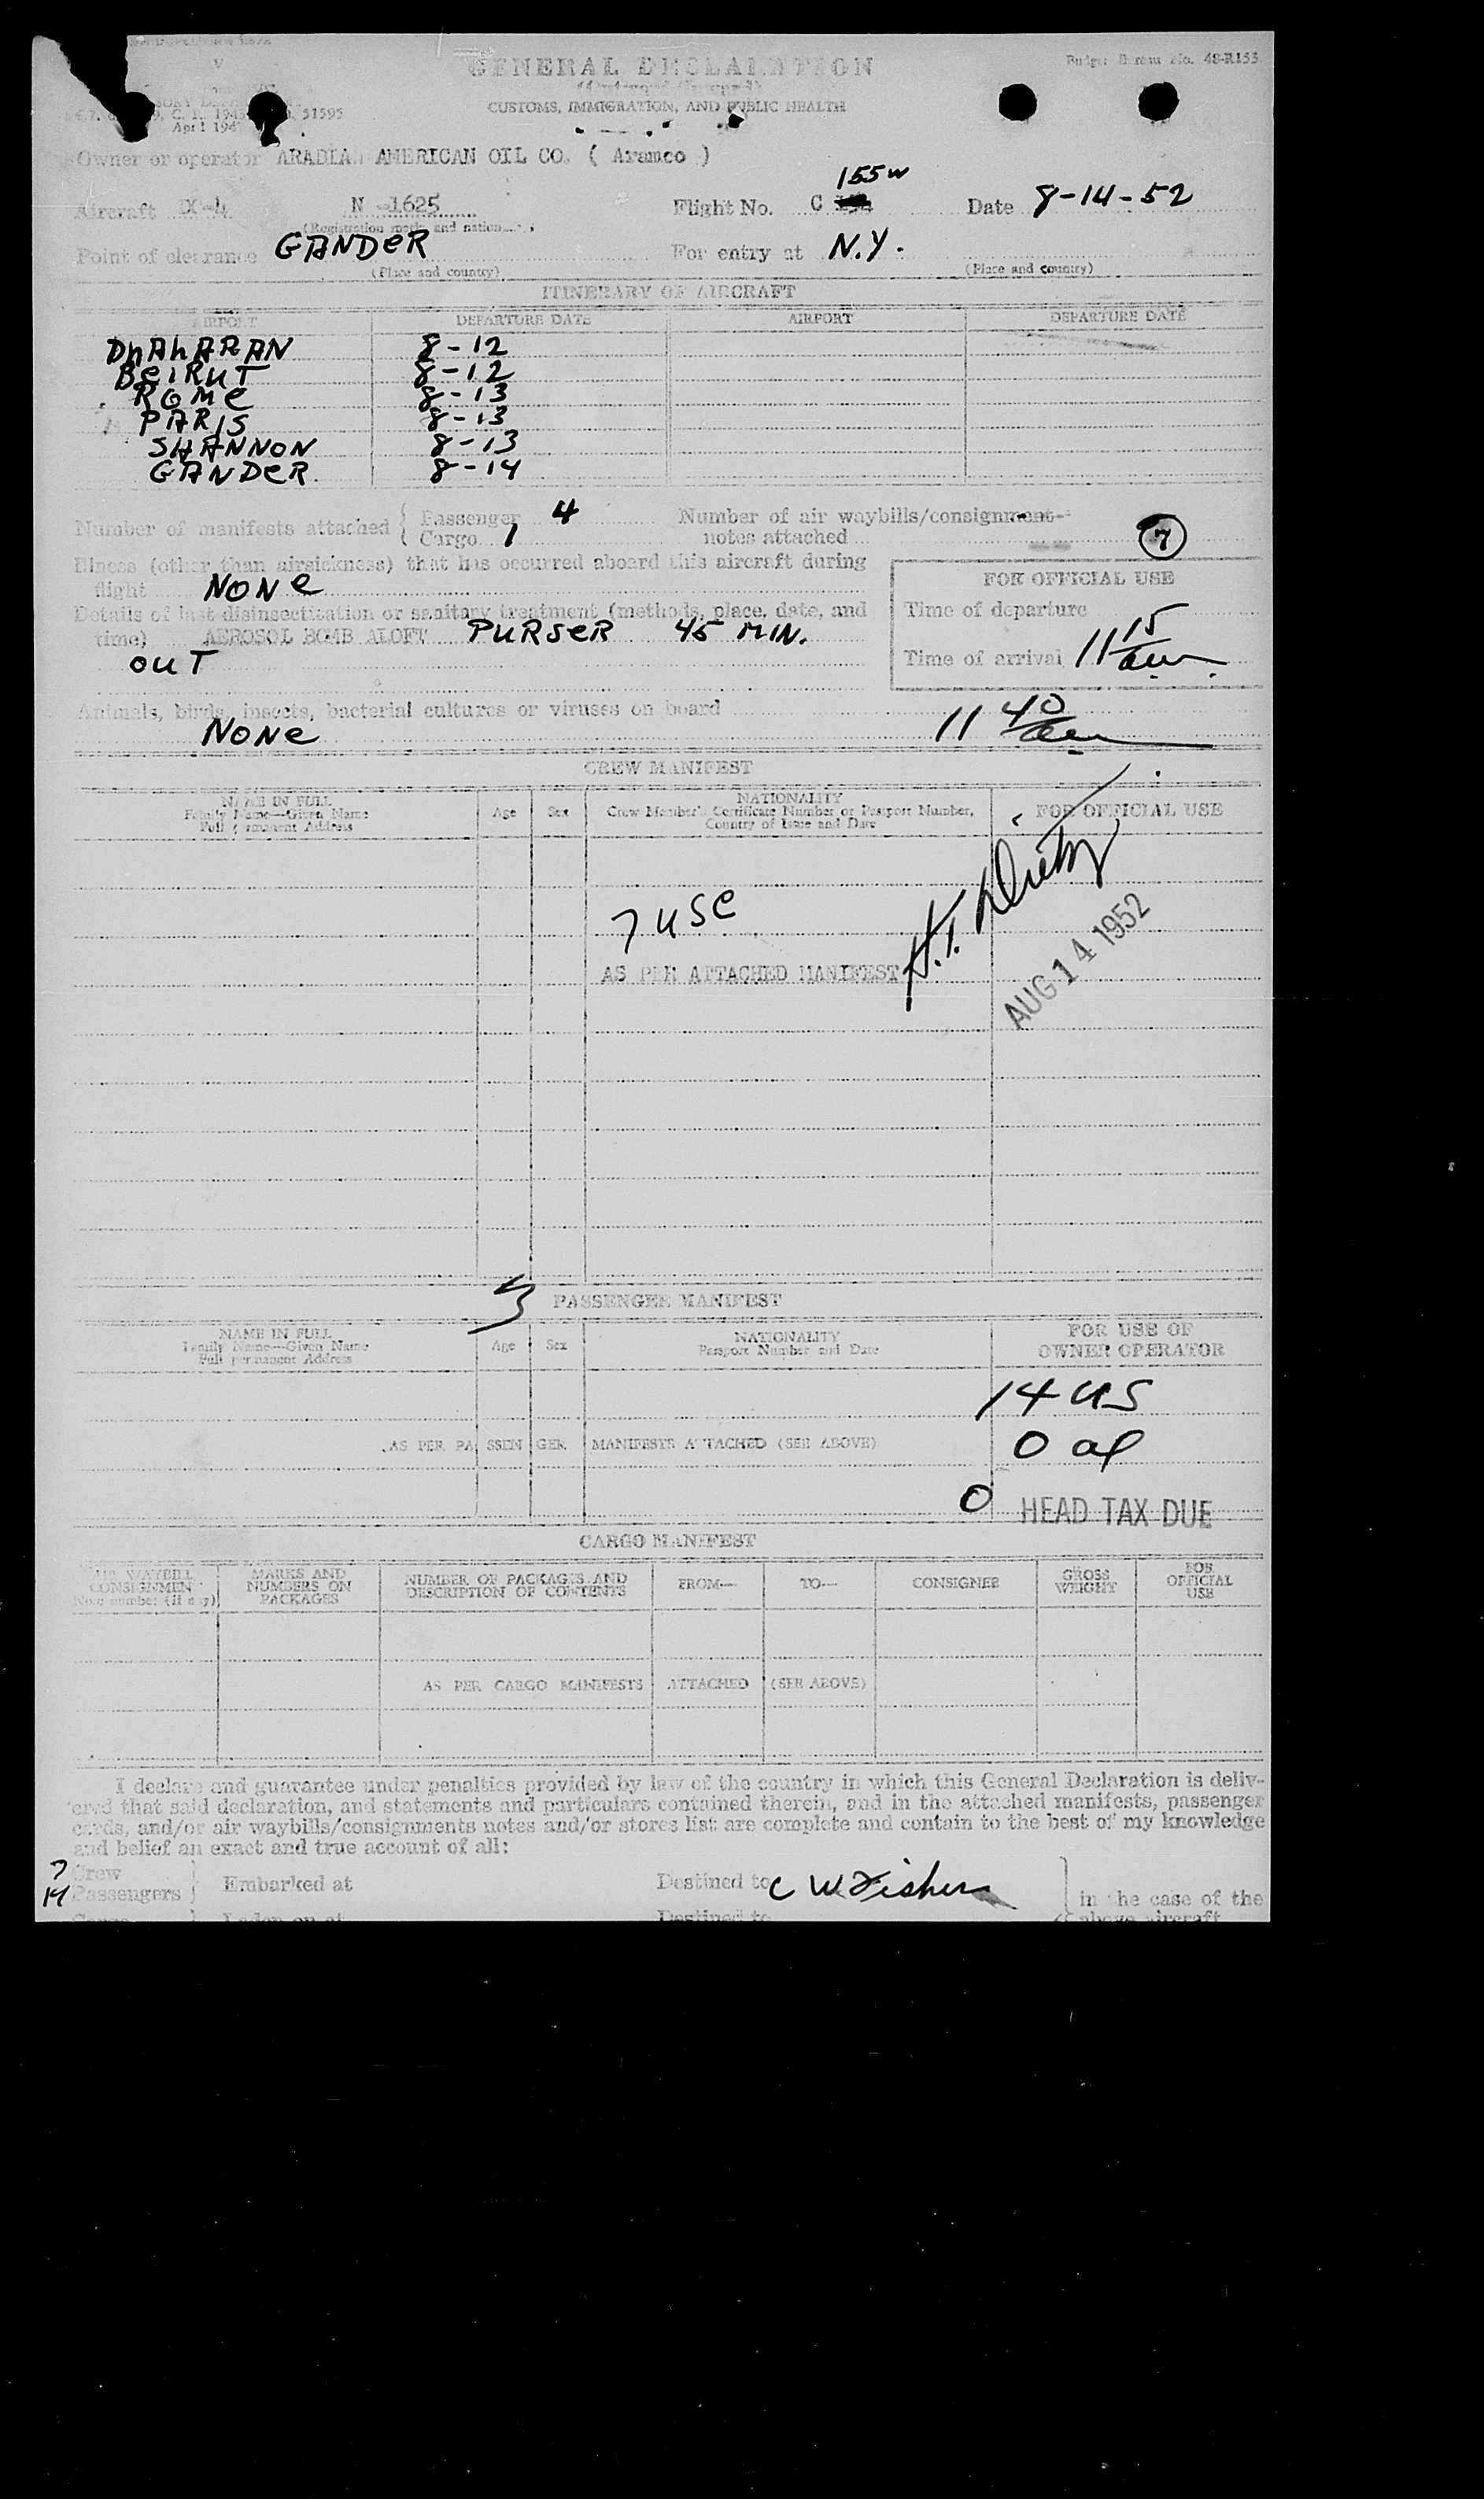 GENERAL DECLARATION
Budget Bureau No. 48-R153
(Outward/Inward)
CUSTOMS, IMMIGRATION, AND PUBLIC HEALTH
51595
April 194
Owner or operator ARABIAN AMERICAN OIL CO. ( Aramco )
155W
Aircraft N -1625 Flight No. C Date 8-14-52
(Registration marks and nation
Point of clearance GANDER For entry at N.Y.
(Place and country) (Place and country)
ITINERARY OF AIRCRAFT
AIRPORT DEPARTURE DATE AIRPORT DEPARTURE DATE
DhAhARAN 8-12
BEIRUT 8-12
ROMe 8-13
PARIS 8-13
SHANNON 8-13
GANDER 8-14
Number of manifests attached { Passenger 4 Number of air waybills/consignment
Cargo 1 notes attached 7
Illness (other than airsickness) that has occurred aboard this aircraft during
flight NONe
FOR OFFICIAL USE
Details of last disinsectization or sanitary treatment (methods, place, date, and
Time of departure
time) AEROSOL BOMB ALOFT PURSER 45 MIN.
OUT
Time of arrival 11 15 am
Animals, birds, insects, bacterial cultures or viruses on board
NONe 11 40 am
CREW MANIFEST
NAME IN FULL
Family Name—Given Name
Full permanent Address
Age Sex
NATIONALITY
Crew Member's Certificate Number or Passport Number,
Country of Issue and Date
FOR OFFICIAL USE
7 USC
AS PER ATTACHED MANIFEST
AUG 14 1952
PASSENGER MANIFEST
NAME IN FULL
Family Name—Given Name
Full permanent Address
Age Sex
NATIONALITY
Passport Number and Date
FOR USE OF
OWNER OPERATOR
14 US
AS PER PASSENGER MANIFESTS ATTACHED (SEE ABOVE)
0 al
0 HEAD TAX DUE
CARGO MANIFEST
AIR WAYBILL
CONSIGNMENT
Note number (if any)
MARKS AND
NUMBERS ON
PACKAGES
NUMBER OF PACKAGES AND
DESCRIPTION OF CONTENTS
FROM— TO— CONSIGNEE
GROSS
WEIGHT
FOR
OFFICIAL
USE
AS PER CARGO MANIFESTS ATTACHED (SEE ABOVE)
I declare and guarantee under penalties provided by law of the country in which this General Declaration is deliv-
ered that said declaration, and statements and particulars contained therein, and in the attached manifests, passenger
cards, and/or air waybills/consignments notes and/or stores list are complete and contain to the best of my knowledge
and belief an exact and true account of all:
7 Crew
14 Passengers } Embarked at Destined to C W Fisher in the case of the
Cargo Laden on at Destined to above aircraft